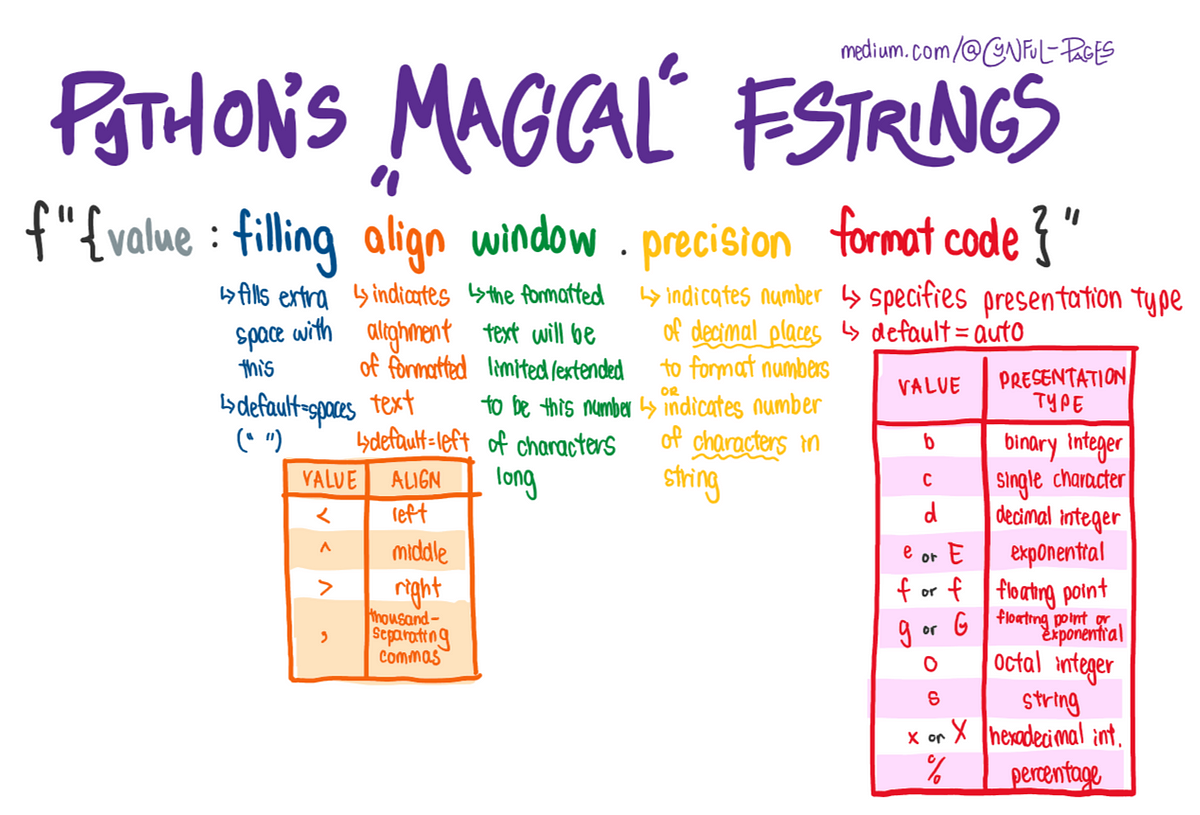 medium.com/@CYNFUL-PAGES
PyTHON'S "MAGICAL" F-STRINGS
f"{value : filling align window . precision format code}"
↳ fills extra
space with
this
↳ default=spaces
(" ")
↳ indicates
alighment
of formatted
text
↳ default=left
VALUE ALIGN
< left
^ middle
> right
, thousand-
separating
commas
↳ the formatted
text will be
limited/extended
to be this number
of characters
long
↳ indicates number
of decimal places
to format numbers
OR
↳ indicates number
of characters in
string
↳ specifies presentation type
↳ default = auto
VALUE PRESENTATION
TYPE
b binary integer
c single character
d decimal integer
e or E exponential
f or f floating point
g or G floating point or
exponential
o octal integer
s string
x or X hexadecimal int.
% percentage